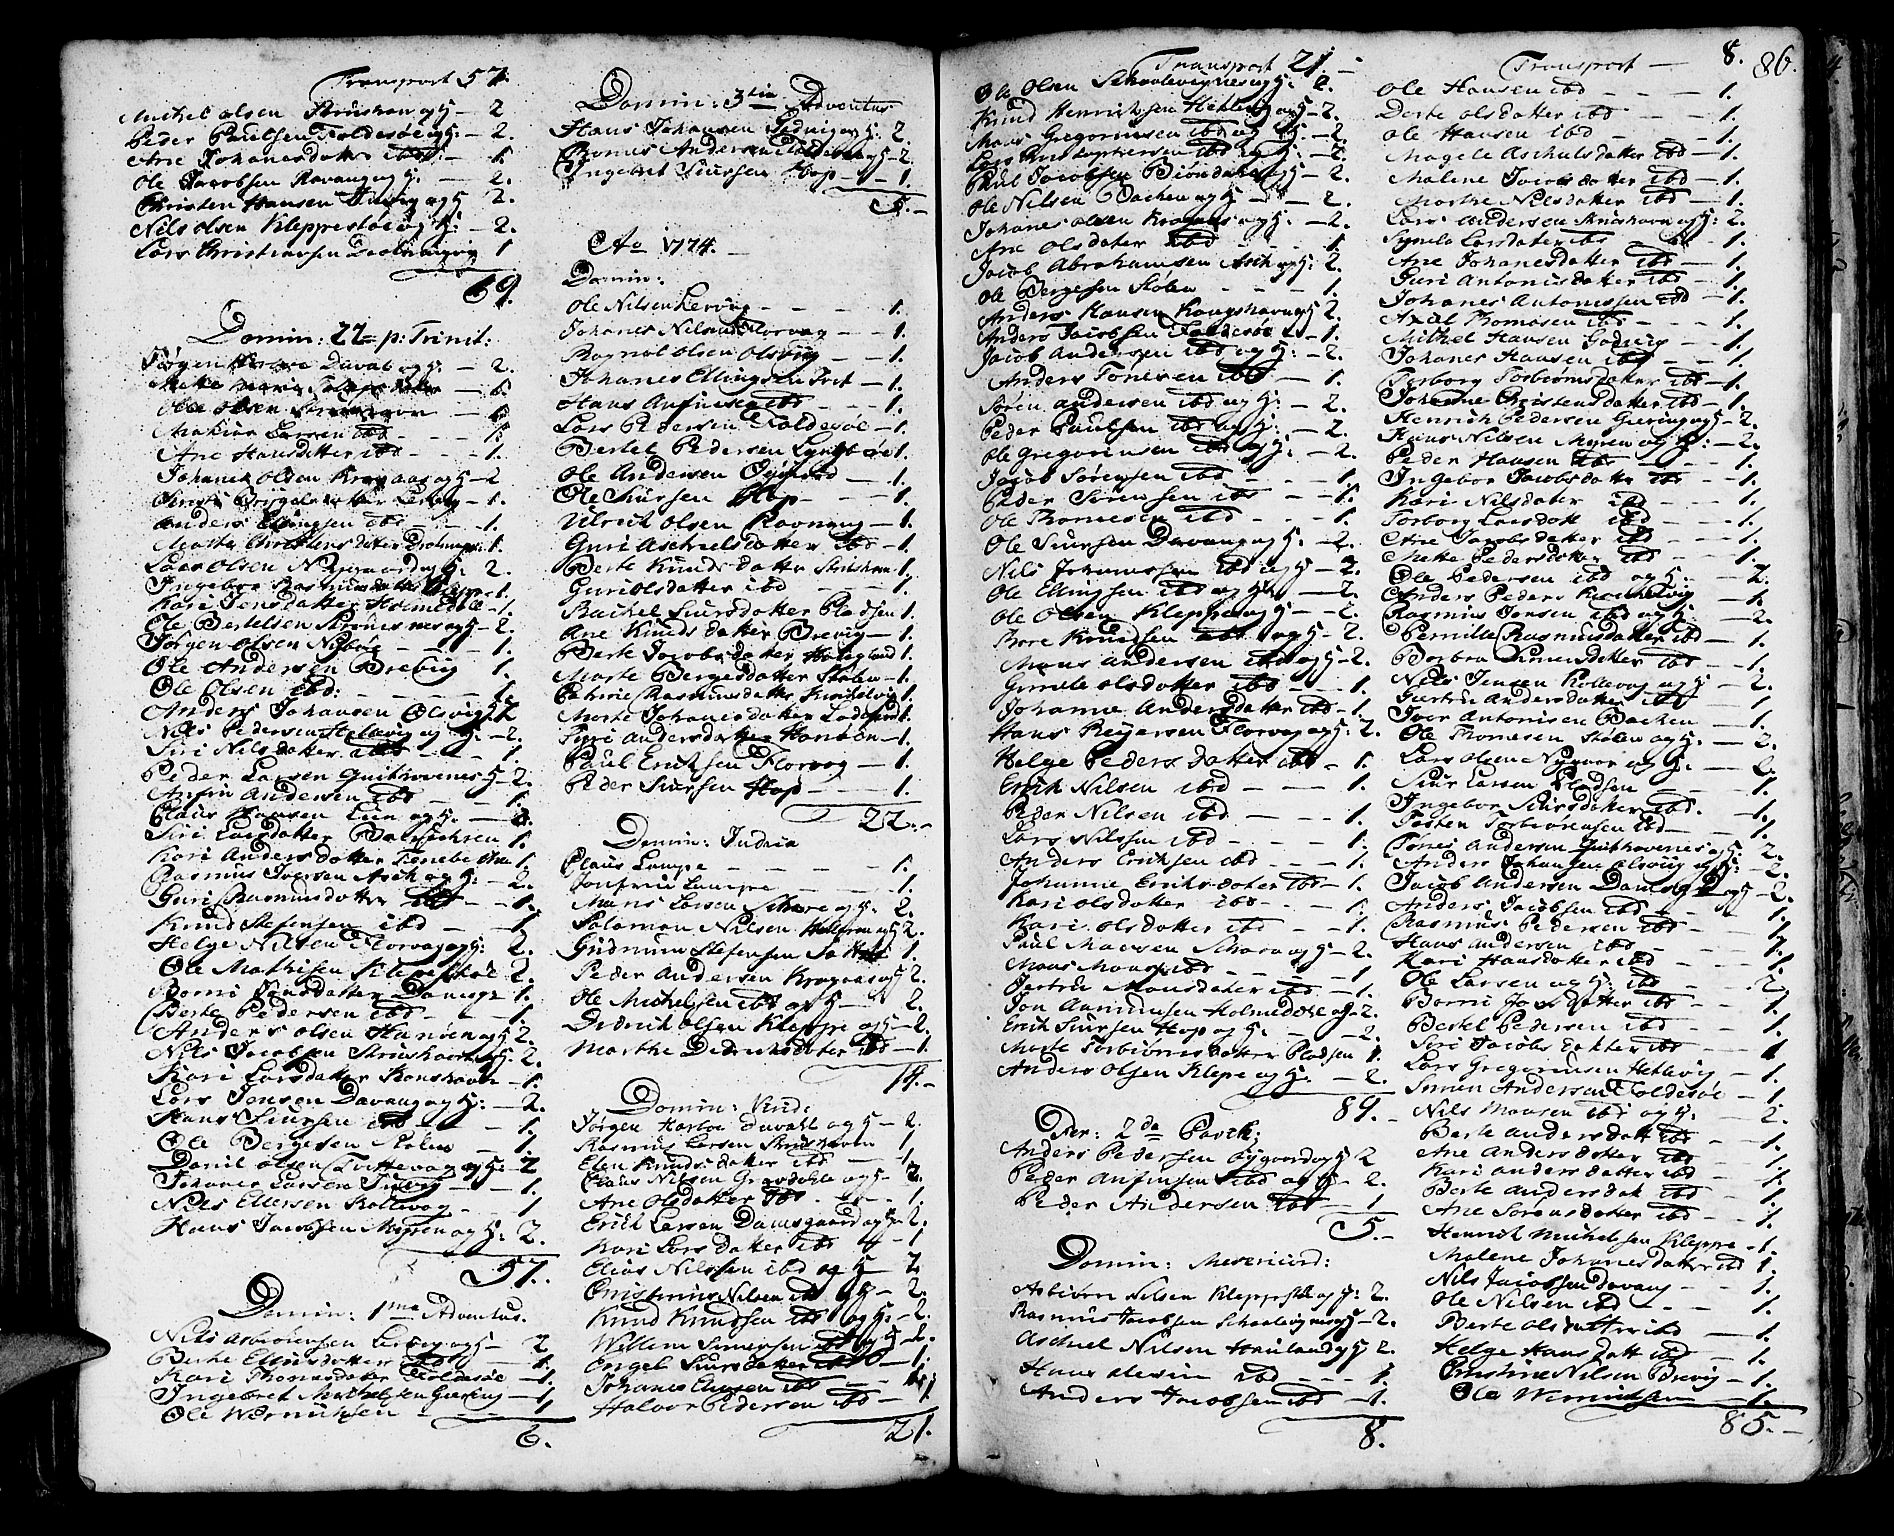 Transport 57.
Michel olsen Skrushavn og H: — 2
Peder Paulsen Foldesøe og H: — 2.
Ane Johanesdatter ibd — 1.
Ole Jacobsen Ravang og H: — 2.
Christen Hansen og H: 2.
Nils olsen Kleppestøe og H: — 2.
Lars Christiansen 1
69.
Domin: 22 p: Trinit:
Jørgen Daval og H: — 2.
Ole olsen
Larsen ibd — 1.
Ane Hansdatter ibd — 1.
Johanes olsen Kragaas og H — 2
Anders Ellingsen ibd — 1.
Marte Christensdatter 1.
Lars Olsen Nygaard og H: 2.
Ingebor Rasmusdatter 1.
Kari Jensdatter Holmedale — 1.
Ole Bertelsen og H — 2.
Jørgen olsen — 1.
Ole Andersen Brevig 1.
Ole Olsen ibd: — 1.
Anders Johansen Olsvig H 2
Nils Pedersen og H: — 2.
Siri Nilsdatter ibd — 1.
Peder Larsen H — 2.
Anfin Andersen ibd — 1.
Claus Hansen Lien og H: — 2.
Siri Larsdatter 1.
Kari Andersdatter 1.
Rasmus Iversen Ask og H: — 2.
Guri Rasmusdatter ibd — 1.
Knud Stefensen ibd — 1.
Helge Nilsen Florvag og H: 2.
Ole Mathisen Kleppestøe 2.
Borni Jansdatter 1.
Berte Pedersen ibd — 1.
Anders olsen Hanøen og H 2.
Nils Jacobsen Skrushavn og H: 2.
Kari Larsdatter — 1.
Lars Jonsen Davang og H: — 2.
Hans Siursen ibd — 1.
Ole Bergesen Stolen — 1.
Danil olsen Tvettevag og H: 2
Johanes Larsen — 1.
Nils Ellersen Rollevag — 1
Hans Jacobsen Myren og H: 2.
57.
Domin: 1ma Adventus.
Nils Asbiørnsen Lervig og H — 2
Berte Ellensdatter ibd — 1.
Kari Thomasdatter Foldesøe — 1
Ingebret Michelsen Giering — 1
Ole Wernichsen — 1
6.
Domin: 3tia Adventus
Hans Johansen og H: 2.
Tomes Andersen og H — 2.
Ingebret Siursen Hop — 1.
5. —
Ao 1774.
Domin:
Ole Nilsen Lervig — 1.
Johanes Nilsen Florvag — 1.
Rognal olsen Olsviig — 1.
Johanes Ellingsen Tret — 1.
Hans Anfinsen ibd — 1.
Lars Pedersen Foldesøe — 1.
Bertel Pedersen 1.
Ole Andersen — 1.
Ole Siursen Hop — 1.
Ulrich olsen Ravnang — 1.
Guri Aschielsdatter ibd — 1.
Berte Knudsdatter Skrushavn 1.
Guri olsdatter ibd — 1.
Rachel Siursdatter Pladsen 1.
Ane Knudsdatter Brevig — 1.
Berte Jacobsdatter 1.
Marte Bergesdatter Stolen — 1.
Rasmusdatter 1.
Marte Johanesdatter 1.
Siri Andersdatter Hanøen — 1.
Paul Eriksen Florvag — 1.
Peder Siursen Hop — 1.
22. —
Domin: Judica
Claus Lampe — 1.
Jonfrue Lampe — 1.
Mons Larsen Skare og H: 2.
Salamon Nilsen og H 2.
Gudmun Stefensen 1.
Peder Andersen Kragaas og H 2.
Ole Michelsen ibd og H — 2.
Didrich Olsen Kleppe og H — 2.
Marthe Didrichsdatter ibd — 1.
14. —
Domin: Vind:
Jørgen Hartvi Davahl og H — 2.
Rasmus Larsen Skrushavn 1.
Elen Knudsdatter ibd — 1.
Claus Nilsen Gravdahl og H — 2.
Ane Olsdatter ibd — 1.
Erich Larsen Damsgaard og H — 2.
Kari Larsdatter ibd — 1.
Elias Nilsen ibd og H — 2.
Christinus Nilsen ibd H — 2.
Knud Knudsen ibd og H — 2.
Willem Simensen ibd og H — 2.
Engel Siursdatter ibd — 1.
Johanes Ellensen ibd — 1.
Halvor Pedersen ibd — 1.
21.
Transport 21. —
Ole Olsen Schaalevignes og H: 2.
Knud Henrichsen Hetlevig og H — 2.
Mons Gregoriusen ibd og H — 2.
Lars Christophersen ibd og H: — 2.
Paul Jacobsen Biøndal og H — 2.
Ole Nilsen Bachen og H — 2.
Johanes olsen Kragaas og H: — 2.
Ane olsdater ibd — 1.
Jacob Abrahamsen Asch og H: 2.
Ole Bergesen Stolen — 1.
Anders Hansen Kongshavn og H: 2.
Anders Jacobsen Foldesøe — 1.
Jacob Andersen ibd og H: — 2.
Anders Tonesen ibd — 1.
Søren andersen ibd og H: — 2.
Peder Paulsen ibd og H: — 2.
Ole Gregoriusen ibd og H: — 2.
Jacob Sørensen ibd — 1.
Peder Sørensen ibd — 1.
Ole Thomesen ibd — 1.
Ole Siursen Davang og H: — 2.
Nils Johannessen ibd og H — 2.
Ole Ellingsen ibd og H — 2.
Ole Olsen Kleppe og H: — 2.
Tore Knudsen ibd og H — 2.
Mons andersen ibd og H — 2.
Gunele olsdatter ibd — 1.
Johanne Andersdatter ibd — 1.
Hans Reyersen Florvag og H: 2.
Helge Pedersdatter ibd — 1.
Erich Nilsen ibd — 1.
Peder Nilsen ibd — 1.
Lars Nilssen ibd — 1.
Anders Erichsen ibd — 1.
Johanne Eriksdater ibd — 1.
Kari Olsdatter ibd — 1.
Kari olsdatter ibd — 1.
Paul Monsen Schare og H — 2.
Mons Monsen ibd — 1.
Jertru Monsdater ibd — 1.
Jon Aamundsen Holmedale og H — 2.
Erik Siursen Hop og H: — 2.
Marte Torbiørnsdatter Pladsen 1.
Anders Olsen Klepe og H: — 2.
89. —
Fer: 2da Pasch:
Anders Pedersen og H 2
Peder Anfinsen ibd og H — 2.
Peder Andersen ibd — 1
5. —
Domin: Misericord:
Asbiørn Nilsen Kleppestøe og H: 2.
Rasmus Jacobsen Schaalevignes og H — 2.
Aschiel Nilsen Hauland og H 2.
Hans ibd — 1.
Anders Jacobsen ibd — 1.
8.
86.
Transport — 8.
Ole Hansen ibd — 1.
Dorte olsdatter ibd — 1.
Ole Hansen ibd — 1.
Magele Aschielsdatter ibd — 1.
Malene Jacobsdatter ibd — 1.
Marthe Nilsdatter ibd — 1.
Lars Andersen Skrushavn og H: 2.
Synela Larsdater ibd — 1.
Ane Johanesdatter ibd — 1.
Guri Antonisdatter ibd — 1.
Johanes Antonissen ibd — 1.
Axel Thomesen ibd — 1.
Michel Hansen Godvig — 1.
Johanes Hansen ibd — 1.
Torborg Torbiørnsdatter ibd — 1.
Johanne Christensdatter ibd — 1.
Henrich Pedersen Giering og H — 2.
Hans Nilsen Myren og H: — 2.
Peder Hansen ibd — 1.
Ingebor Jacobsdatter ibd — 1.
Kari Nilsdater ibd — 1.
Torborg Larsdatt ibd — 1.
Ane Jacobsdatter ibd — 1.
Mette Pedersdatter ibd — 1.
Ole Pedersen ibd og H: — 2.
Anders Peders — 1.
Rasmus Jensen ibd og H: — 2.
Pernille Rasmusdatter ibd — 1.
Barbra Simensdatter ibd — 1.
Nils Jensen Rollevag og H — 2.
Jertru Andersdatter ibd — 1.
Iver Antonisen Bachen — 1.
Ole Thomesen Stolen og H: — 2.
Lars Olsen Nygaar og H: — 2.
Siur Larsen Pladsen — 1.
Ingebor Siursdatter ibd — 1.
Torsten Torbiørnsen ibd — 1.
Tones Andersen og H: 2.
Anders Johansen Olsviig og H: — 2.
Jacob Andersen Damsg og H — 2.
Anders Jacobsen ibd — 1.
Rasmus Pedersen ibd — 1.
Hans Andersen ibd — 1.
Kari Hansdatter ibd — 1.
Ole Larsen og H: ibd — 2.
Borni Jansdatter ibd — 1.
Bertel Pedersen ibd — 1.
Siri Jacobsdatter ibd — 1
Lars Gregoriusen Hetlevig — 1.
Simon Andersen Foldesøe — 1
Nils Monsen ibd og H: — 2.
Berte Andersdatt ibd — 1.
Ane Andersdatter ibd — 1.
Kari andersdatter ibd — 1.
Berte andersdat ibd — 1.
Ane Sorensdatter ibd — 1.
Henrich Michelsen Kleppe — 1.
Malene Johanesdatter ibd 1.
Nils Jacobsen Davang — 1.
Ole Nilsen ibd — 1.
Berte olsdatter ibd — 1.
Helge Hansdatt ibd — 1.
Christine Nilsen Brevig — 1.
Ole Wernichsen — 1.
85. —